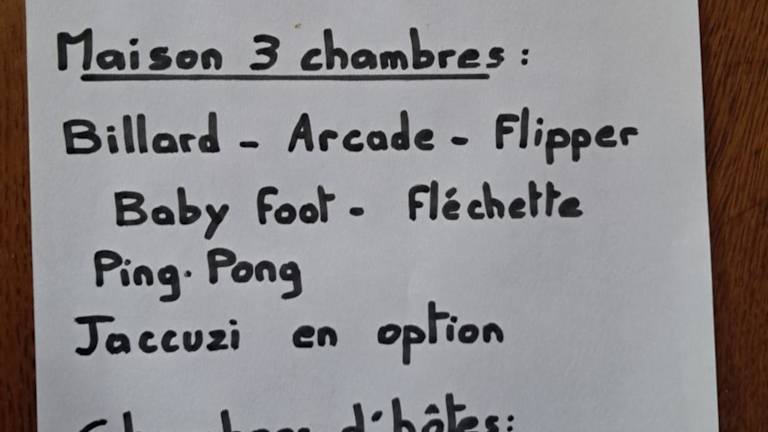 Maison 3 chambres :
Billard - Arcade - Flipper
Baby foot - Fléchette
Ping-Pong
Jaccuzi en option
d'hôtes: